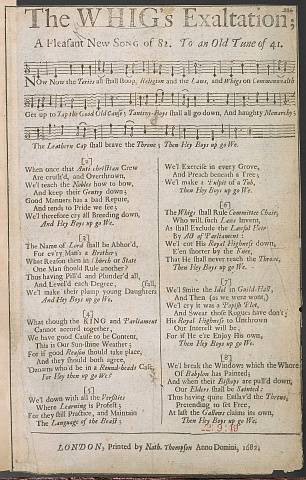 The WHIG's Exaltation;
A Pleasant New SONG of 82. To an Old Tune of 41.
NOw Now the Tories all shall stoop, Religion and the Laws, and Whigs on Commonwealth
Get up to Tap the Good Old Cause; Tantivy-Boys shall all go down, and haughty Monarchy;
The Leathern Cap shall brave the Throne; Then Hey Boys up go We.
[2]
When once that Anti christian Crew
Are crush'd, and Overthrown,
We'l teach the Nobles how to bow,
And keep their Gentry down;
Good Manners has a bad Repute,
And tends to Pride we see;
We'l therefore cry all Breeding down,
And Hey Boys up go We.
[3]
The Name of Lord shall be Abhor'd,
For ev'ry Man's a Brother;
What Reason then in Church or State
One Man should Rule another?
Thus having Pill'd and Plunder'd all,
And Levell'd each Degree, (fall,
We'l make their plump young Daughters
And Hey Boys up go We.
[4]
What though the KING and Parliament
Cannot accord together,
We have good Cause to be Content,
This is Our Sun-shine Weather;
For if good Reason should take place,
And they should both agree,
Who'd be in a Round-heads Case,
For Hey then up go We?
[5]
We'l down with all the Versities
Where Learning is Profest;
For they still Practice, and Maintain
The Language of the Beast:
We'l Exercise in every Grove,
And Preach beneath a Tree;
We'l make a Pulpit of a Tub,
Then Hey Boys up go We.
[6]
The Whigs shall Rule Committee Chair,
Who will such Laws Invent,
As shall Exclude the Lawful Heir
By Act of Parliament:
We'l cut His Royal Highness down,
E'en shorter by the Knee,
That He shall never reach the Throne,
Then Hey Boys up go We.
[7]
We'l Smite the Idol in Guild-Hall,
And Then (as we were wont,)
We'l cry it was a Popish Plot,
And Swear those Rogues have don't;
His Royal Highness to Unthrown
Our Interest will be,
For if He e're Enjoy His own,
Then Hey Boys up go We.
[8]
We'l break the Windows which the Whore
Of Babylon has Painted;
And when their Bishops are pull'd down,
Our Elders shall be Sainted:
Thus having quite Enslav'd the Throne,
Pretending to set Free,
At last the Gallows claims its own,
Then Hey Boys up go We.
LONDON, Printed by Nath. Thompson Anno Domini, 1682.